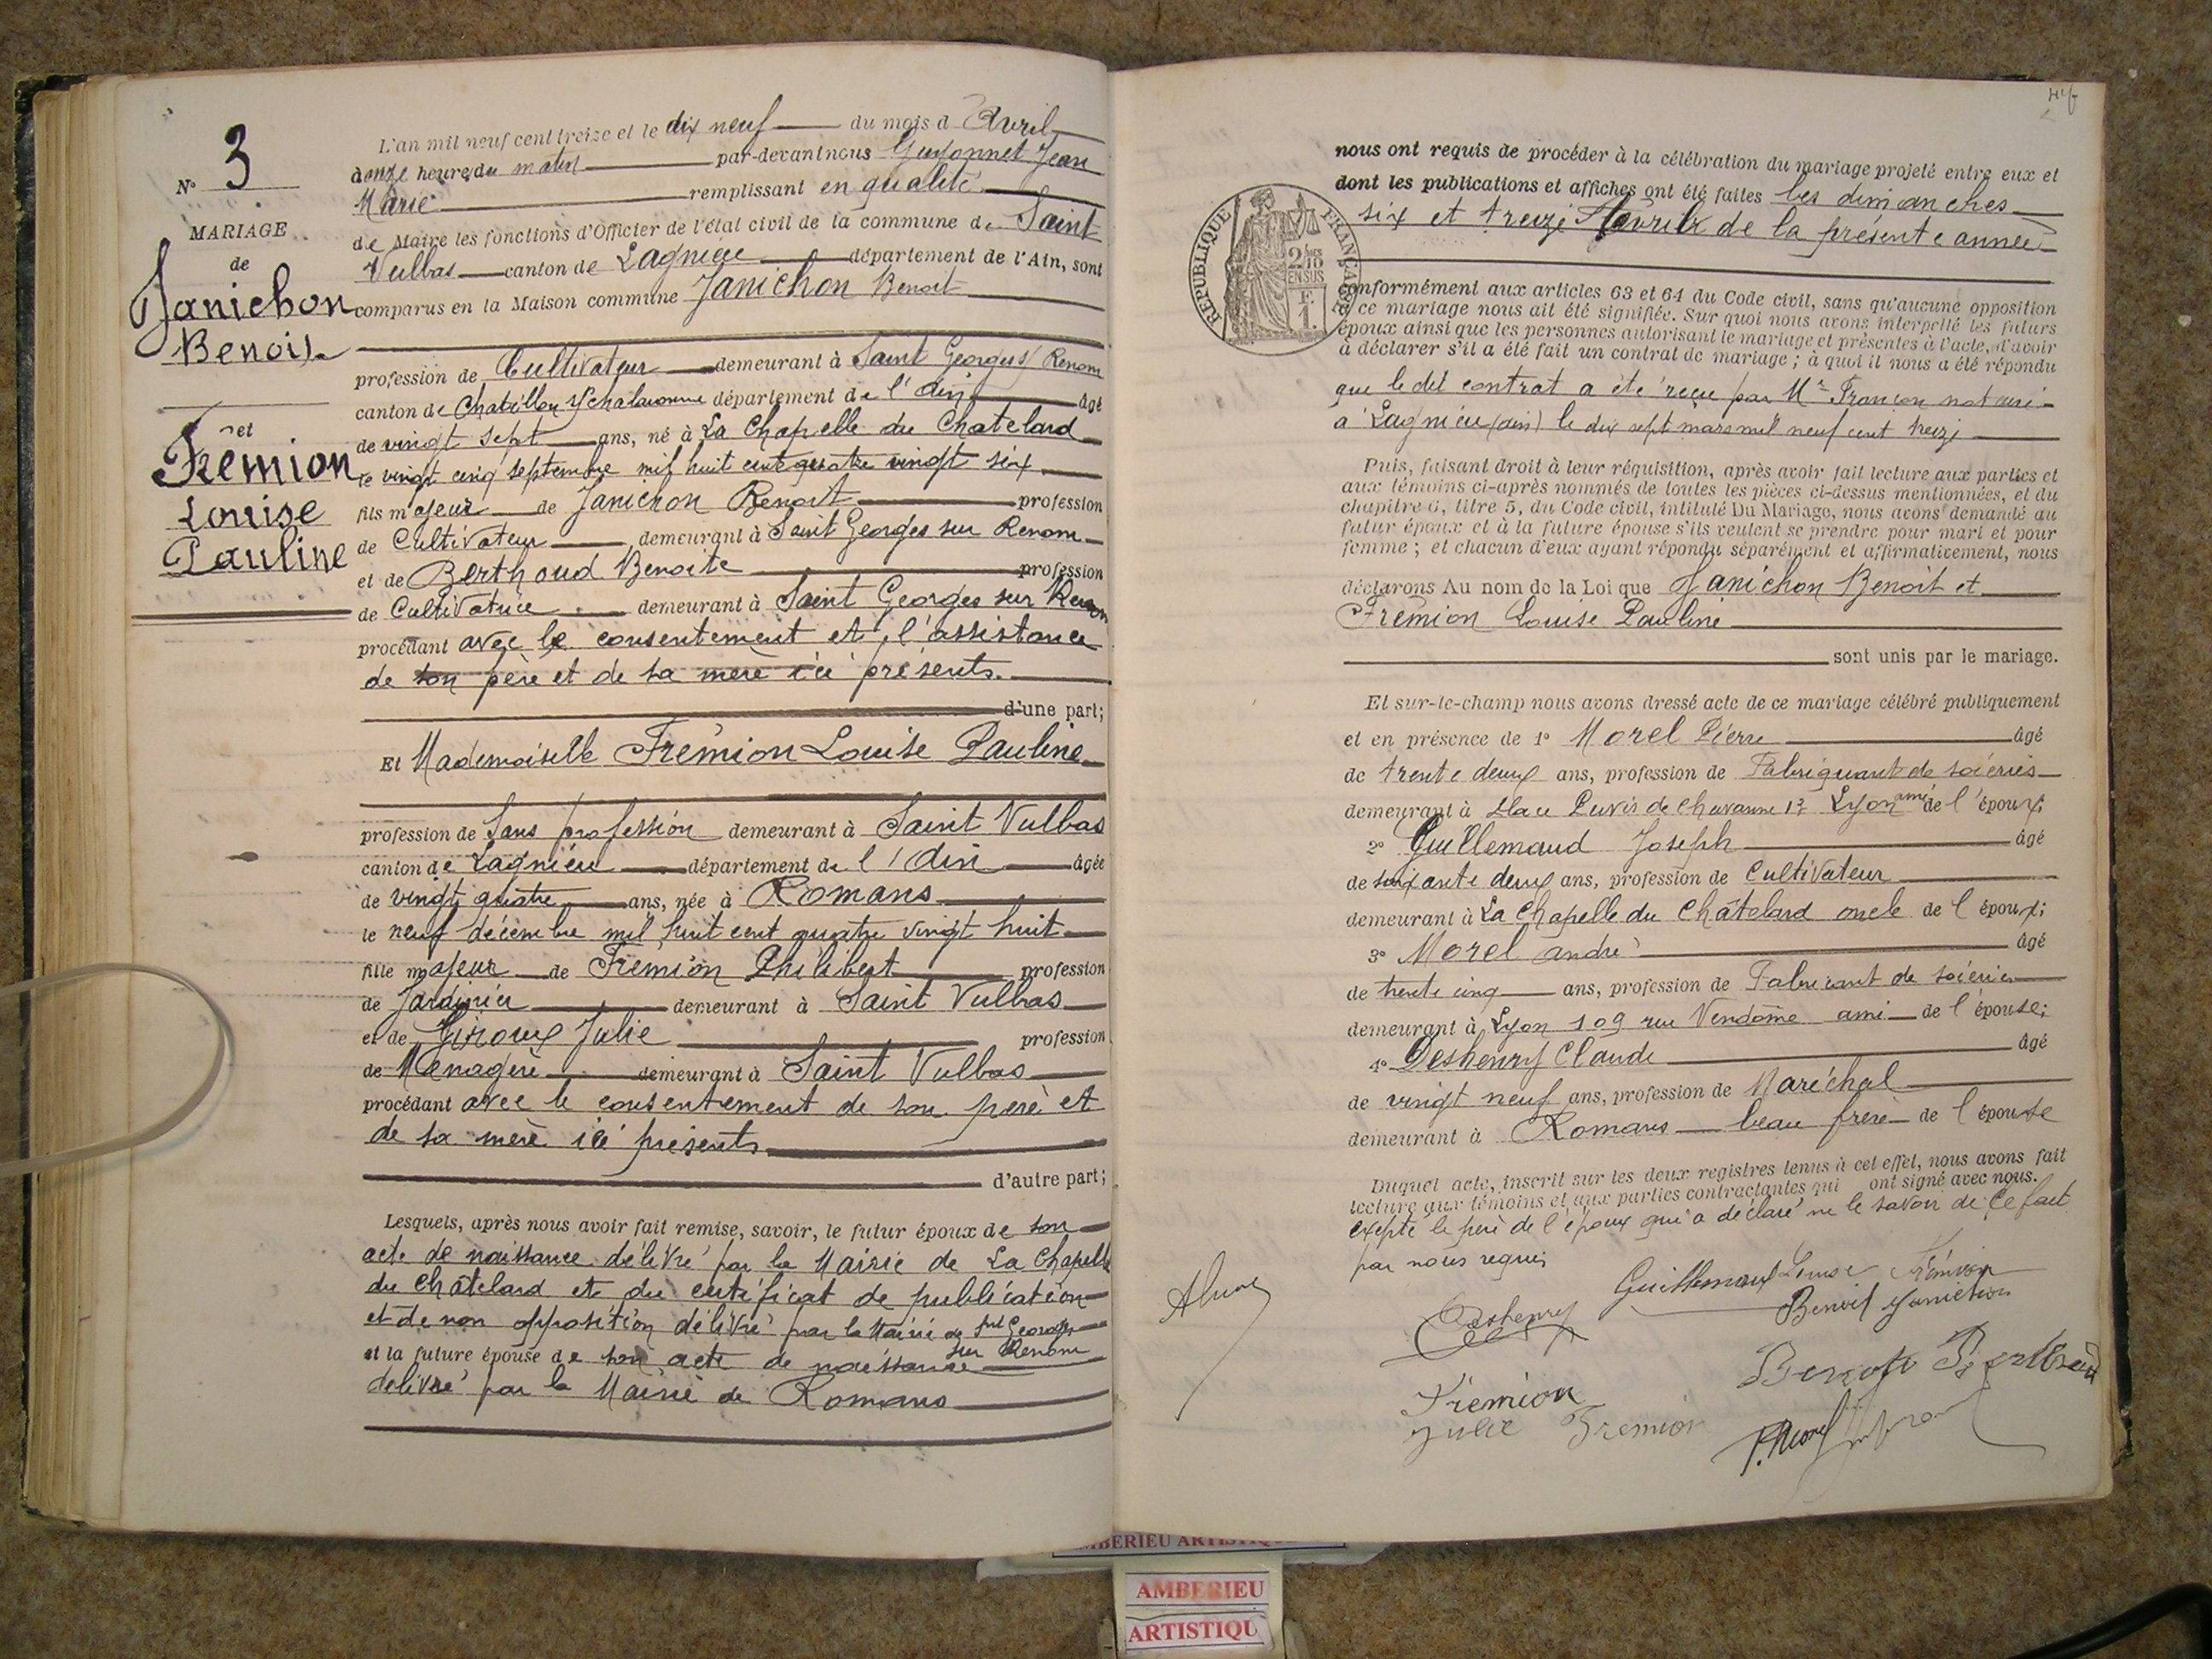 N° 3
MARIAGE
de
Janichon
Benoit
et
Frémion
Louise
Pauline
L'an mil neuf cent treize et le dix neuf du mois d'Avril
à onze heures du matin par-devant nous Guyonnet Jean
Marie remplissant en qualité
de Maire les fonctions d'Officier de l'état civil de la commune de Saint
Vulbas canton de Lagnieu département de l'Ain, sont
comparus en la Maison commune Janichon Benoit
profession de Cultivateur demeurant à Saint Georges / Renom
canton de Chatillon s/ Chalaronne département de l'Ain âgé
de vingt sept ans, né à La Chapelle du Chatelard
le vingt cinq septembre mil huit cent quatre vingt six
fils majeur de Janichon Benoit profession
de Cultivateur demeurant à Saint Georges sur Renom
et de Berthoud Benoite profession
de Cultivatrice demeurant à Saint Georges sur Renom
procédant avec le consentement et l'assistance
de son père et de sa mère ici présents.
d'une part;
Et Mademoiselle Frémion Louise Pauline
profession de Sans profession demeurant à Saint Vulbas
canton de Lagnieu département de l'Ain âgée
de vingt quatre ans, née à Romans
le neuf décembre mil huit cent quatre vingt huit
fille majeur de Frémion Philibert profession
de Jardinier demeurant à Saint Vulbas
et de Giroux Julie profession
de Ménagère demeurant à Saint Vulbas
procédant avec le consentement de son père et
de sa mère ici présents
d'autre part;
Lesquels, après nous avoir fait remise, savoir, le futur époux de son
acte de naissance délivré par la Mairie de La Chapelle
du Châtelard et du certificat de publication
et de non opposition délivré par la Mairie de St Georges
sur Renom
et la future épouse de son acte de naissance
délivré par la Mairie de Romans
nous ont requis de procéder à la célébration du mariage projeté entre eux et
dont les publications et affiches ont été faites les dimanches
six et treize Avril de la présente année
RÉPUBLIQUE FRANÇAISE
2/10
EN SUS
F.
1.
conformément aux articles 63 et 64 du Code civil, sans qu'aucune opposition
à ce mariage nous ait été signifiée. Sur quoi nous avons interpellé les futurs
époux ainsi que les personnes autorisant le mariage et présentes à l'acte, d'avoir
à déclarer s'il a été fait un contrat de mariage ; à quoi il nous a été répondu
que le dit contrat a été reçu par Mr Françon notaire
à Lagnieu (ain) le dix sept mars mil neuf cent treize
Puis, faisant droit à leur réquisition, après avoir fait lecture aux parties et
aux témoins ci-après nommés de toutes les pièces ci-dessus mentionnées, et du
chapitre 6, titre 5, du Code civil, intitulé Du Mariage, nous avons demandé au
futur époux et à la future épouse s'ils veulent se prendre pour mari et pour
femme ; et chacun d'eux ayant répondu séparément et affirmativement, nous
déclarons Au nom de la Loi que Janichon Benoit et
Frémion Louise Pauline
sont unis par le mariage.
Et sur-le-champ nous avons dressé acte de ce mariage célébré publiquement
et en présence de 1° Morel Pierre âgé
de trente deux ans, profession de Fabriquant de soieries
demeurant à place Puvis de Chavanne Lyon ami de l'époux;
2° Guillemaud Joseph âgé
de soixante deux ans, profession de Cultivateur
demeurant à La Chapelle du Châtelard oncle de l'époux;
3° Morel André âgé
de trente cinq ans, profession de Fabricant de soieries
demeurant à Lyon 109 rue Vendôme ami de l'épouse;
4° Deshenry Claude âgé
de vingt neuf ans, profession de Maréchal
demeurant à Romans beau frère de l'épouse
Duquel acte, inscrit sur les deux registres tenus à cet effet, nous avons fait
lecture aux témoins et aux parties contractantes qui ont signé avec nous.
excepté le père de l'époux qui a déclaré ne le savoir de ce fait
par nous requis
Guillemaud Louise Frémion
Deshenry Benoit Janichon
Frémion
Julie Fremion
P. Morel
AMBERIEU ARTISTIQU
AMBERIEU
ARTISTIQU